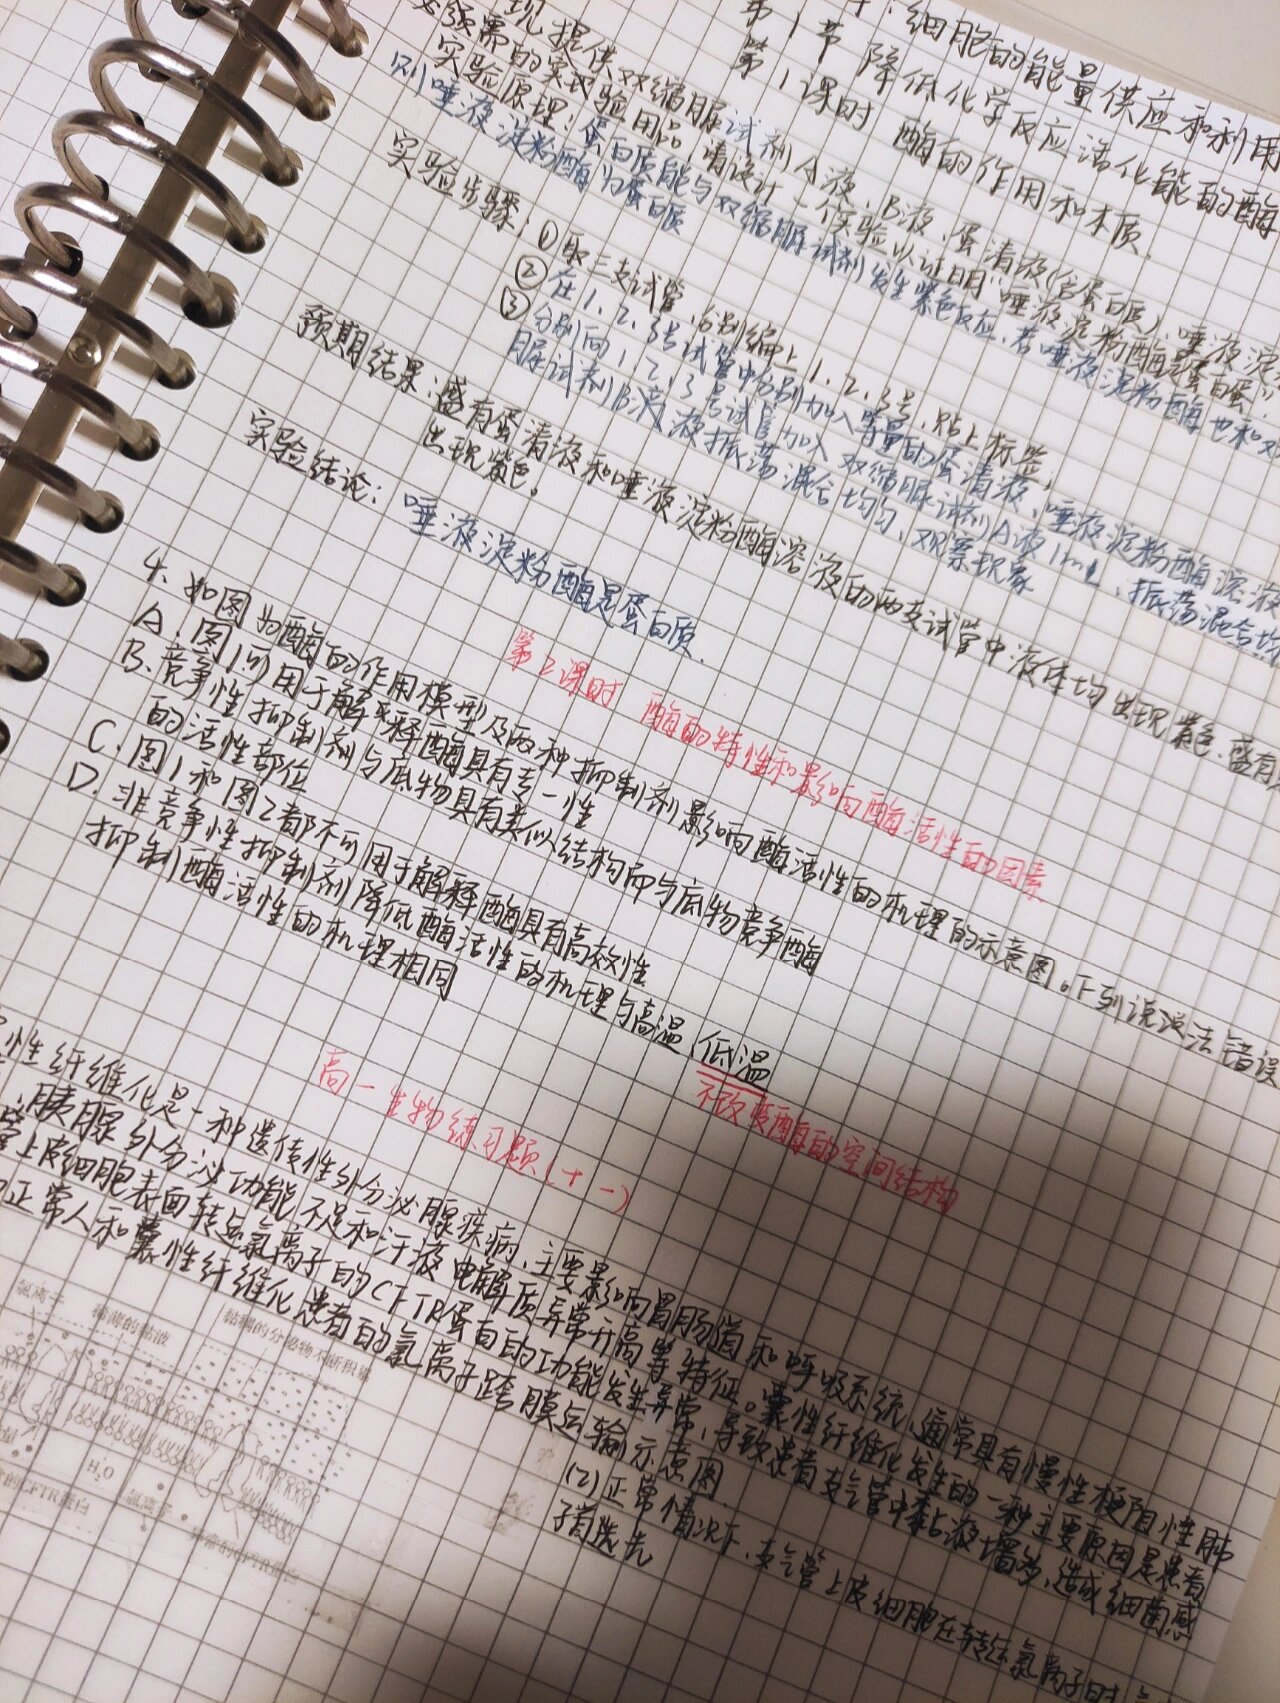 细胞的能量供应和利用
第1节 降低化学反应活化能的酶
第1课时 酶的作用和本质.
现提供双缩脲试剂A液、B液、蛋清液(含蛋白质)、唾液淀
必须需的实验用品,请设计一个实验以证明“唾液淀粉酶是蛋白质”.
实验原理:蛋白质能与双缩脲试剂发生紫色反应,若唾液淀粉酶也和双
则唾液淀粉酶为蛋白质
实验步骤:①取三支试管,分别编上1、2、3号,贴上标签,
②在1、2、3号试管中分别加入等量的蛋清液、唾液淀粉酶溶液
③分别向1、2、3号试管加入双缩脲试剂A液1mL,振荡混合均
脲试剂B液 液振荡混合均匀,观察现象
预期结果:盛有蛋清液和唾液淀粉酶溶液的两支试管中液体均出现紫色,盛有
出现紫色。
实验结论:唾液淀粉酶是蛋白质.
第2课时 酶的特性和影响酶活性的因素
4、如图为酶的作用模型及两种抑制剂影响酶活性的机理的示意图。下列说法错误
A.图1可用于解释酶具有专一性
B.竞争性抑制剂与底物具有类似结构而与底物竞争酶
的活性部位
C.图1和图2都不可用于解释酶具有高效性
D.非竞争性抑制剂降低酶活性的机理与高温、低温
抑制酶活性的机理相同
不改变酶的空间结构
高一生物练习题(十一)
性纤维化是一种遗传性外分泌腺疾病,主要影响胃肠道和呼吸系统,通常具有慢性梗阻性肺
胰腺外分泌功能不足和汗液电解质异常升高等特征。囊性纤维化发生的一种主要原因是患者
管上皮细胞表面转运氯离子的CFTR蛋白的功能发生异常,导致患者支气管中黏液增多,造成细菌感
正常人和囊性纤维化患者的氯离子跨膜运输示意图.
氯离子 稀薄的黏液 黏稠的分泌物不断积累
H₂O 氯离子
CFTR蛋白 CFTR蛋白
(2)正常情况下,支气管上皮细胞在转运氯离子时
子首先